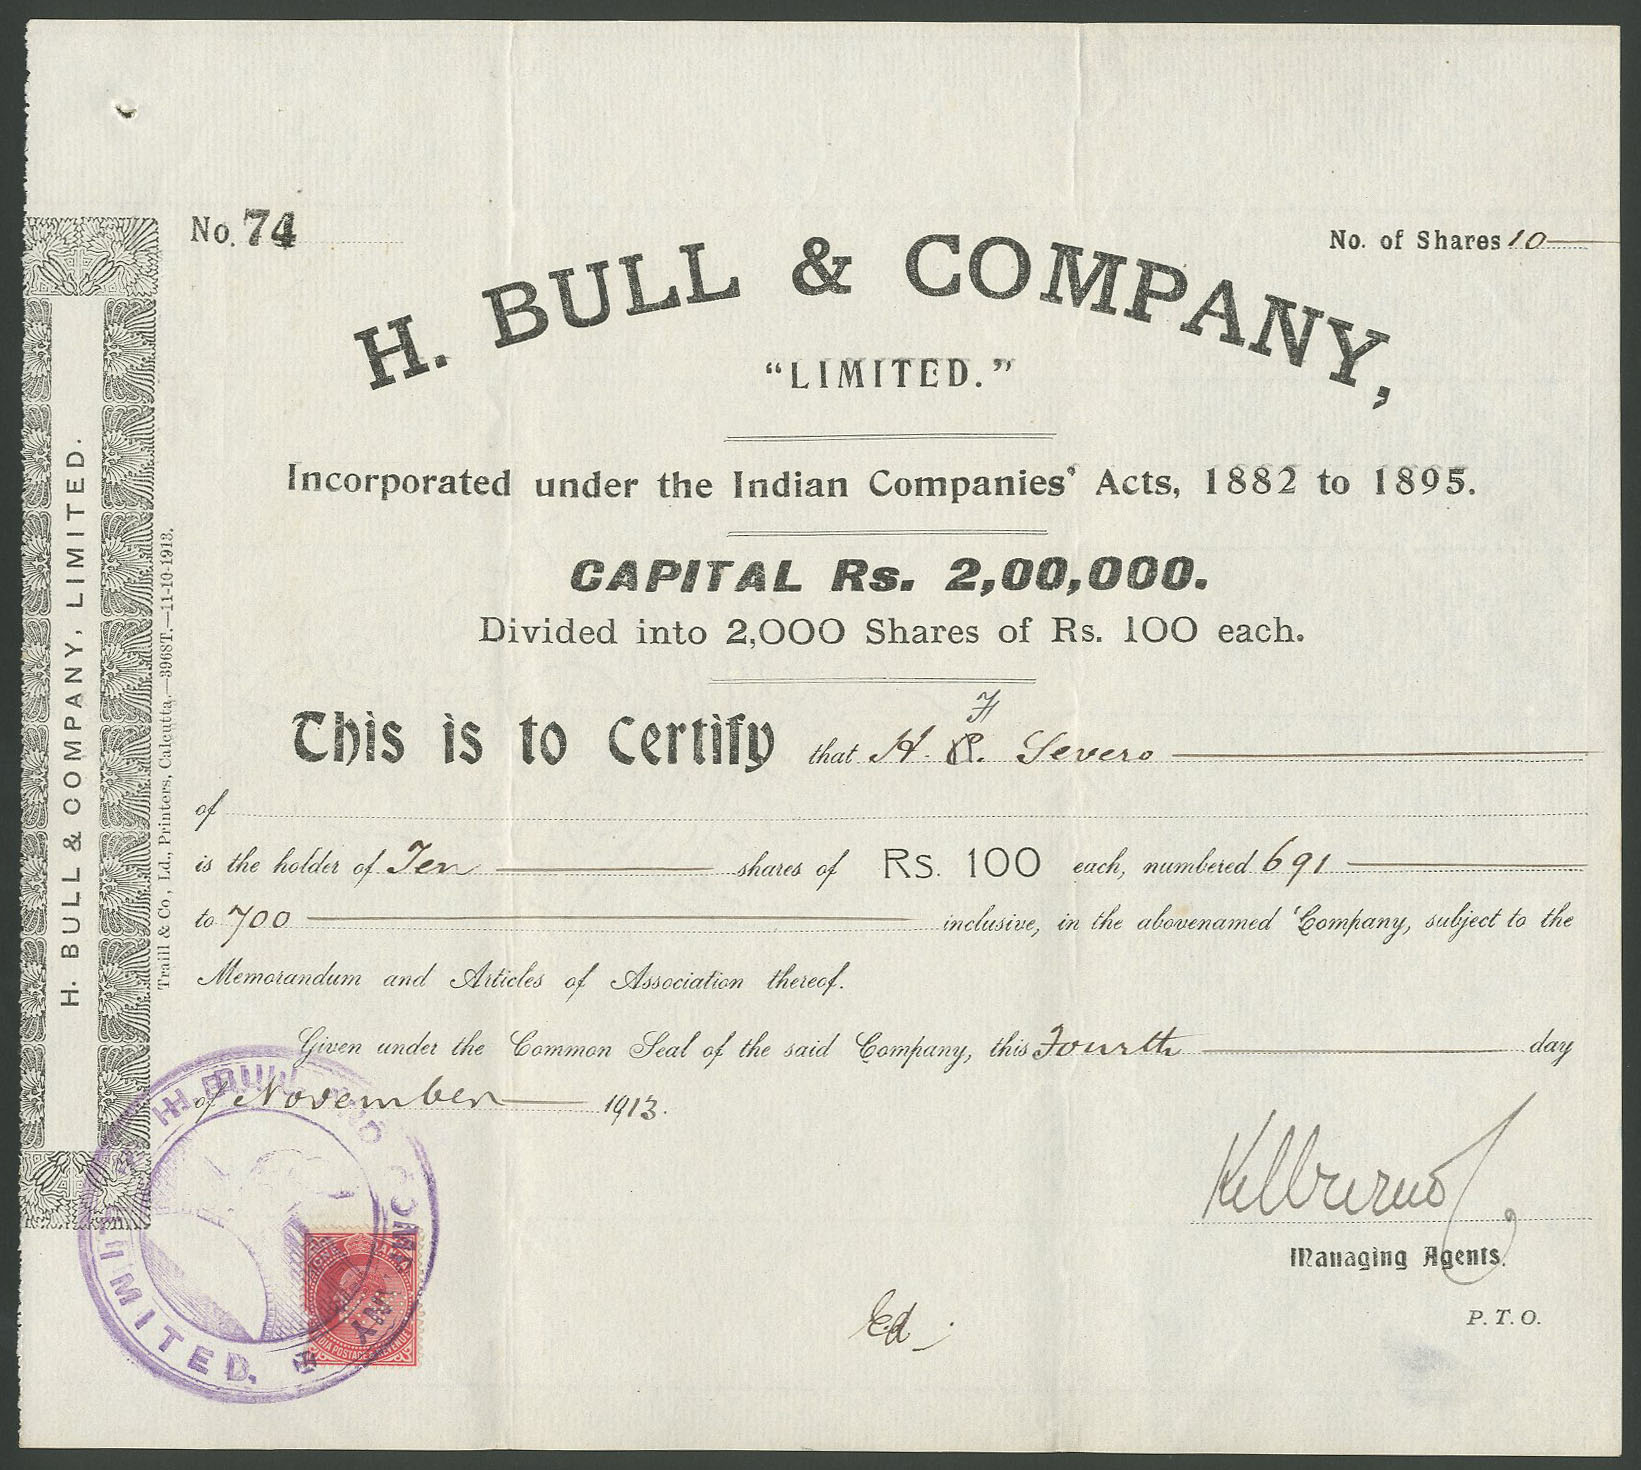 No. 74
No. of Shares 10
H. BULL & COMPANY,
“LIMITED.”
Incorporated under the Indian Companies' Acts, 1882 to 1895.
CAPITAL Rs. 2,00,000.
Divided into 2,000 Shares of Rs. 100 each.
F
This is to Certify that H. P. Severo
of
is the holder of Ten shares of Rs. 100 each, numbered 691
to 700 inclusive, in the abovenamed Company, subject to the
Memorandum and Articles of Association thereof.
Given under the Common Seal of the said Company, this Fourth day
of November 1913.
Managing Agents.
Ed
P. T. O.
H. BULL & COMPANY, LIMITED.
Traill & Co., Ld., Printers, Calcutta.—3968T.—11-10-1913.
H. BULL AND COMPANY LIMITED.
ONE ANNA
INDIA POSTAGE & REVENUE